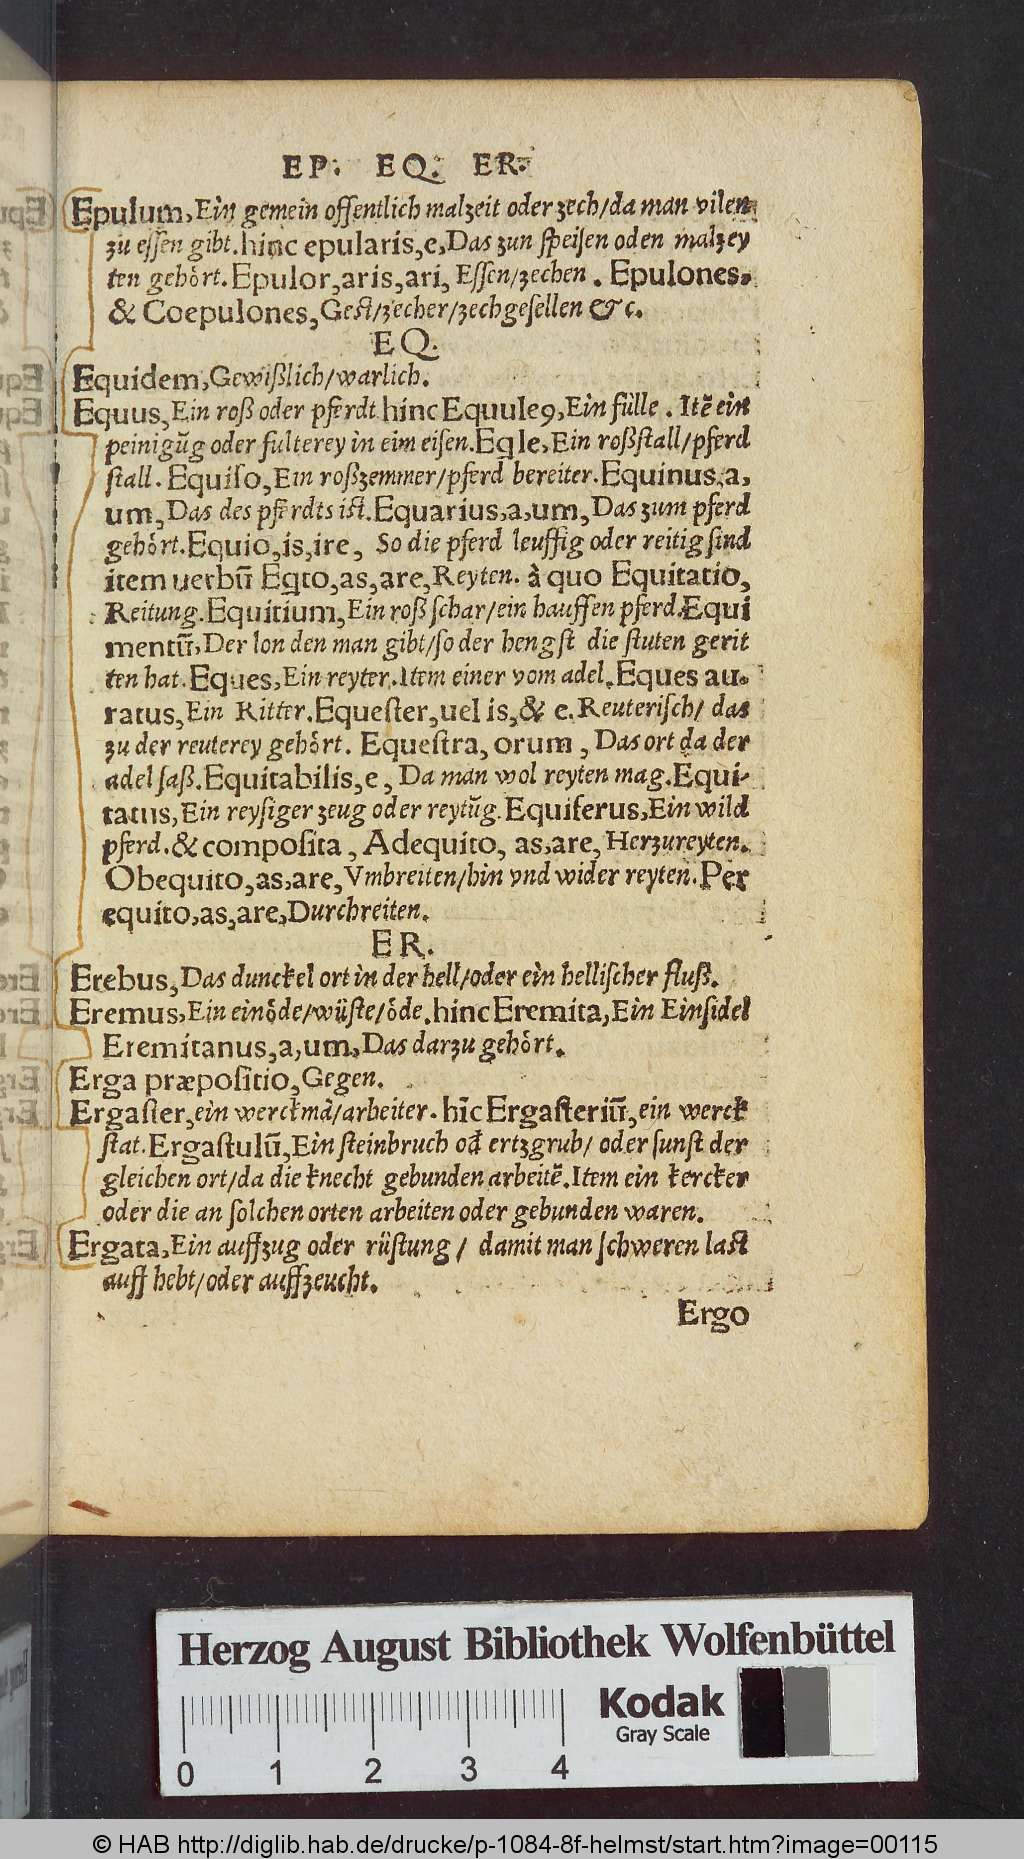 EP. EQ. ER.
Epulum, Ein gemein offentlich malzeit oder zech/da man vilen
zu essen gibt. hinc epularis, e, Das zun speisen oden malzey
ten gehört. Epulor, aris, ari, Essen/zechen. Epulones,
& Coepulones, Gest/zecher/zechgesellen &c.
EQ.
Equidem, Gewißlich/warlich.
Equus, Ein roß oder pferdt hinc Equuleꝰ, Ein fülle. Itẽ ein
peinigũg oder fulterey in eim eisen. Eqle, Ein roßstall/pferd
stall. Equiso, Ein roßzemmer/pferd bereiter. Equinus, a,
um, Das des pferdts ist. Equarius, a, um, Das zum pferd
gehört. Equio, is, ire, So die pferd leuffig oder reitig sind
item uerbũ Eqto, as, are, Reyten. à quo Equitatio,
Reitung. Equitium, Ein roß schar/ein hauffen pferd. Equi
mentũ, Der lon den man gibt/so der hengst die stuten gerit
ten hat. Eques, Ein reyter. Item einer vom adel. Eques au-
ratus, Ein Ritter. Equester, uel is, & e. Reuterisch/ das
zu der reuterey gehört. Equestra, orum, Das ort da der
adel saß. Equitabilis, e, Da man wol reyten mag. Equi-
tatus, Ein reysiger zeug oder reytũg. Equiferus, Ein wild
pferd. & composita, Adequito, as, are, Herzureyten.
Obequito, as, are, Vmbreiten/hin vnd wider reyten. Per
equito, as, are, Durchreiten.
ER.
Erebus, Das dunckel ort in der hell/oder ein hellischer fluß.
Eremus, Ein einöde/wüste/öde. hinc Eremita, Ein Einsidel
Eremitanus, a, um, Das darzu gehört.
Erga præpositio, Gegen.
Ergaster, ein werckmã/arbeiter. hĩc Ergasteriũ, ein werck
stat. Ergastulũ, Ein steinbruch od̃ ertzgrub/ oder sunst der
gleichen ort/da die knecht gebunden arbeitẽ. Item ein kercker
oder die an solchen orten arbeiten oder gebunden waren.
Ergata, Ein auffzug oder rüstung/ damit man schweren last
auff hebt/oder auffzeucht.
Ergo
Herzog August Bibliothek Wolfenbüttel
Kodak
Gray Scale
0 1 2 3 4
© HAB http://diglib.hab.de/drucke/p-1084-8f-helmst/start.htm?image=00115